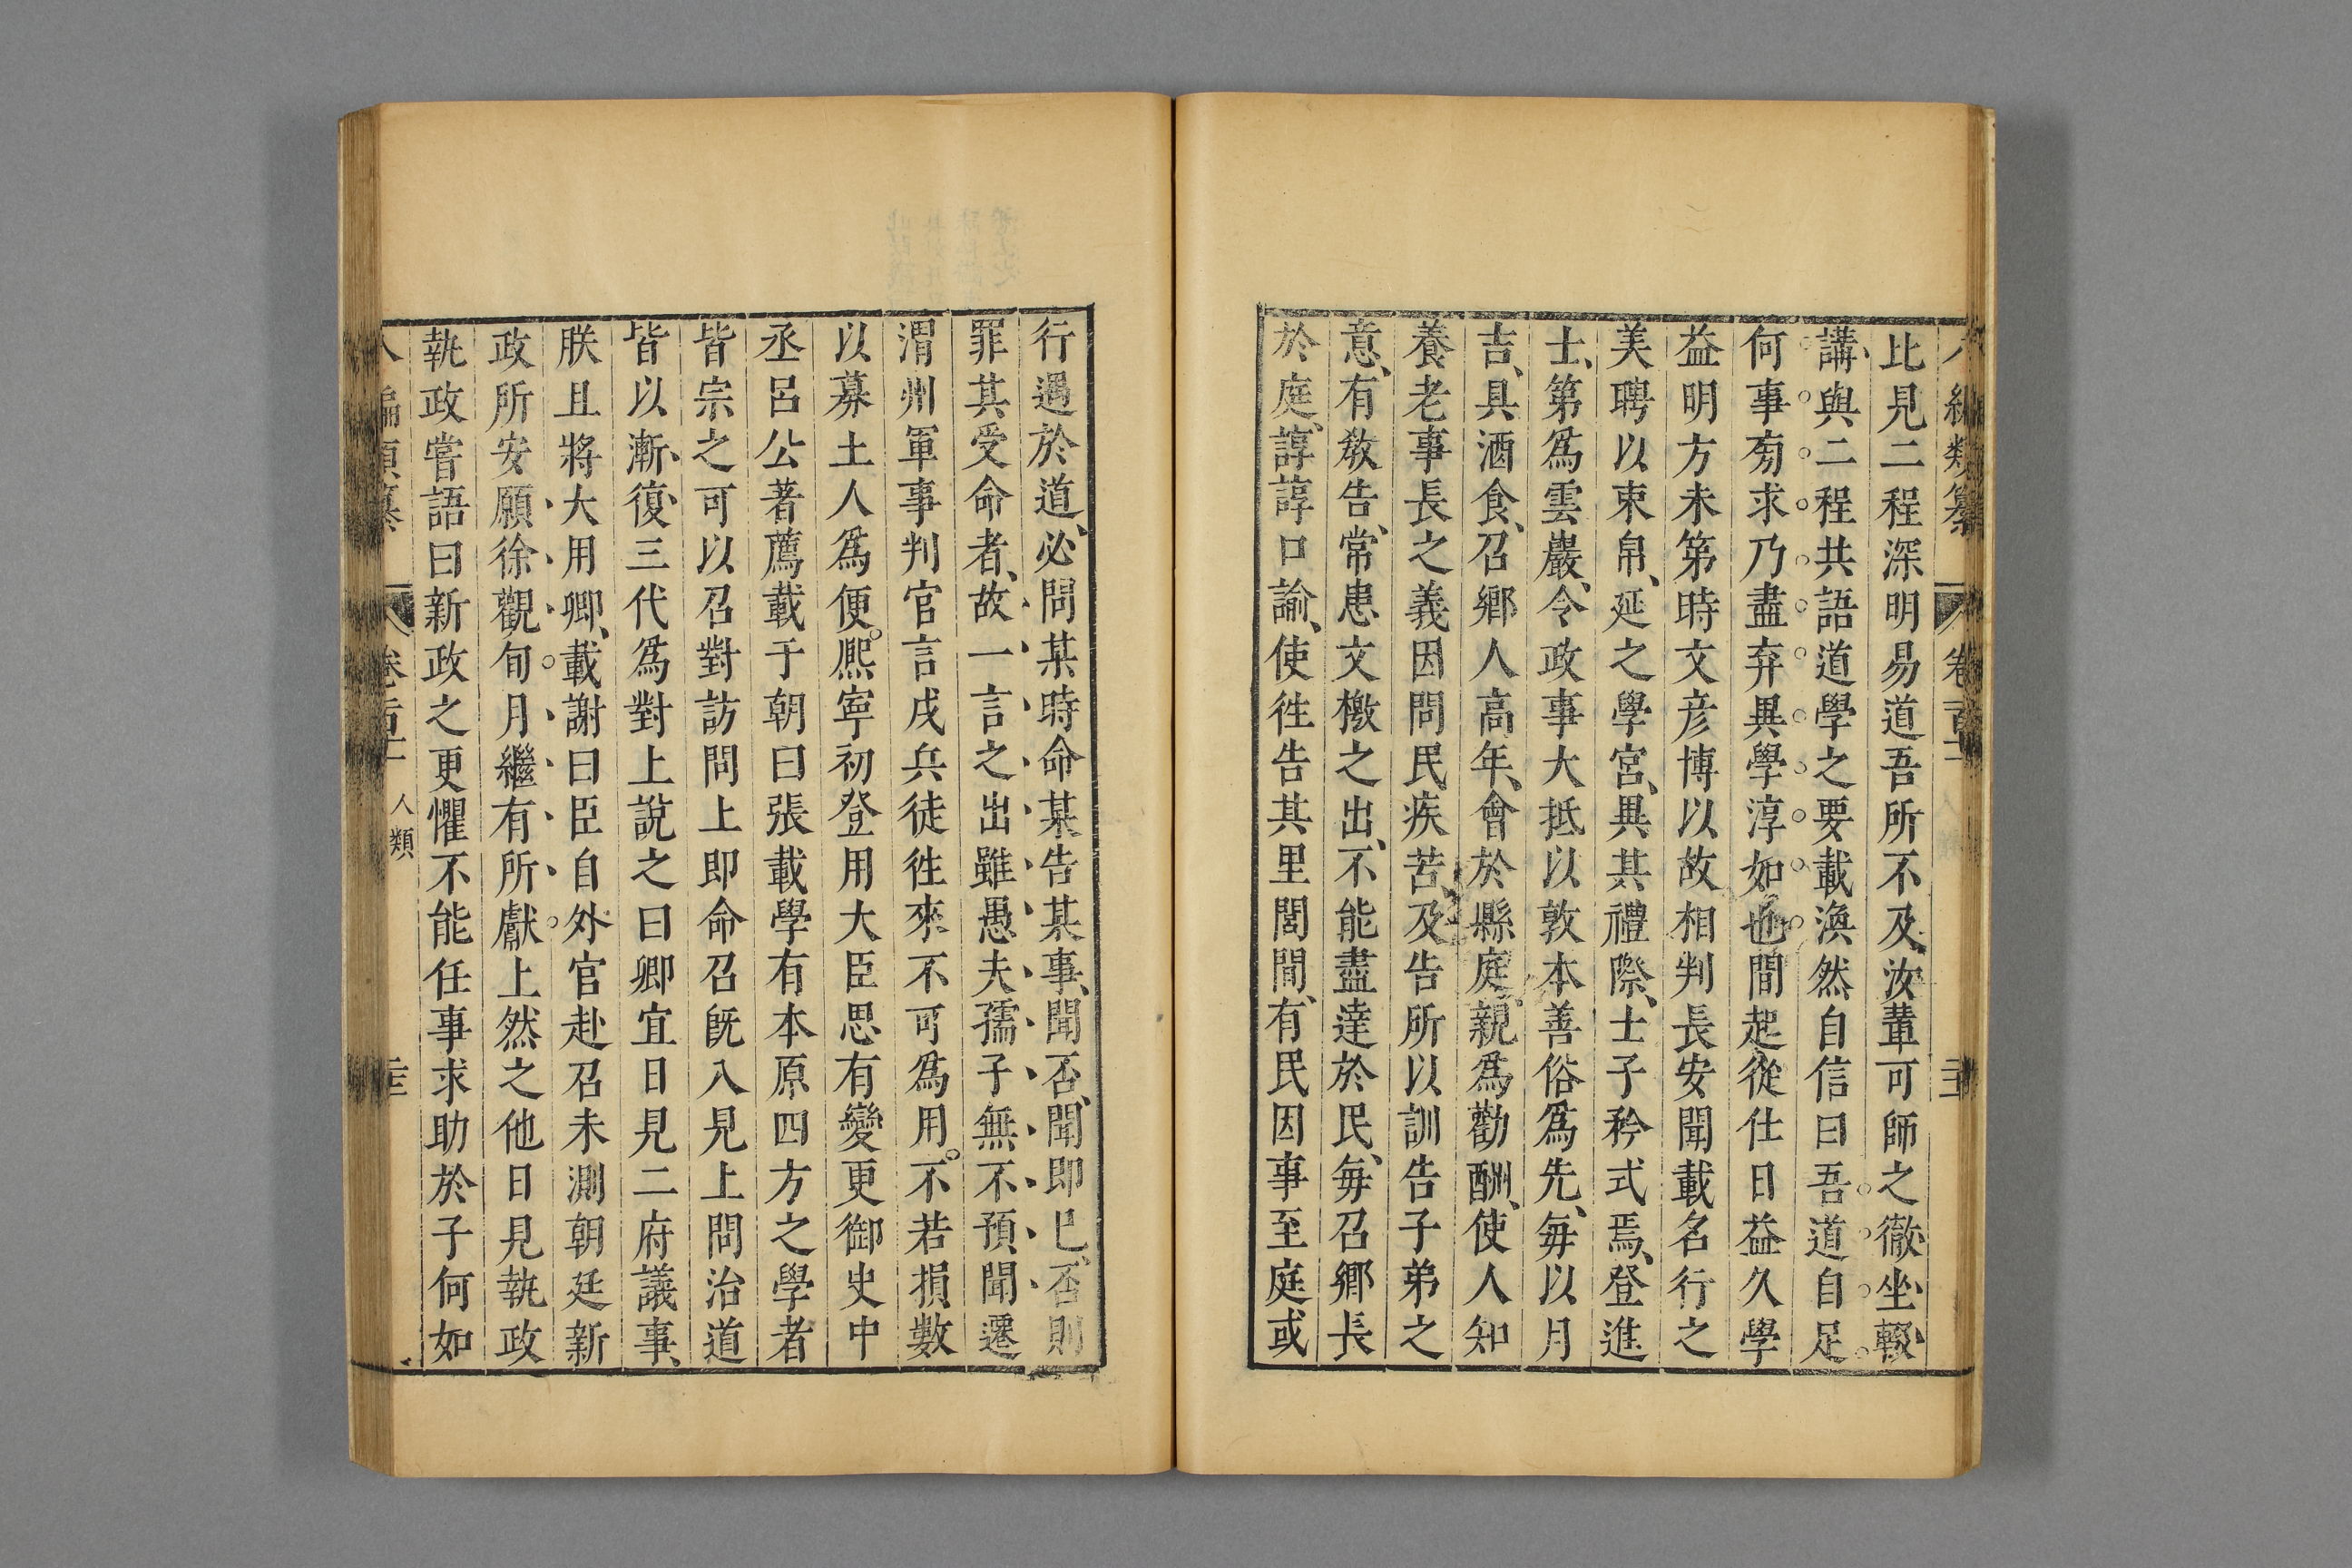 比見二程深明易道吾所不及汝輩可師之徹坐輟
講與二程共語道學之要載渙然自信曰吾道自足
何事旁求乃盡弃異學淳如也間起從仕日益久學
益明方未第時文彦博以故相判長安聞載名行之
美聘以束帛、延之學宮、異其禮際、士子矜式焉、登進
士、第爲雲巖、令政事大抵以敦本善俗爲先、每以月
吉、具酒食、召鄉人高年、會於縣庭、親爲勸酬、使人知
養老事長之義因問民疾苦、及告所以訓告子弟之
意、有敎告、常患文檄之出、不能盡達於民、每召鄉長
於庭、諄諄口諭、使徃告其里閭間、有民因事至庭或
行遇於道、必問某時命某告某事、聞否、聞即已、否則
罪其受命者、故一言之出雖愚夫孺子無不預聞遷
渭州軍事判官言戍兵徒徃來不可爲用。不若損數
以募土人爲便。熈寧初登用大臣思有變更御史中
丞呂公著薦載于朝曰張載學有本原四方之學者
皆宗之可以召對訪問上即命召既入見上問治道
皆以漸復三代爲對上說之曰卿宜日見二府議事、
朕且將大用卿、載謝曰臣自外官赴召未測朝廷新
政所安願徐觀旬月繼有所獻上然之他日見執政
執政嘗語曰新政之更懼不能任事求助於子何如
人類